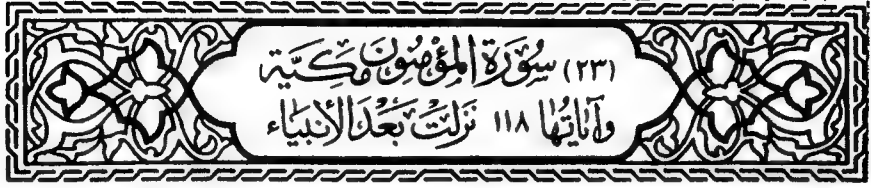 (٢٣) سُورَةُ المؤمنون مَكِّيَّة
وَآيَاتُهَا ١١٨ نَزَلَتْ بَعْدَ الأَنْبِيَاءِ